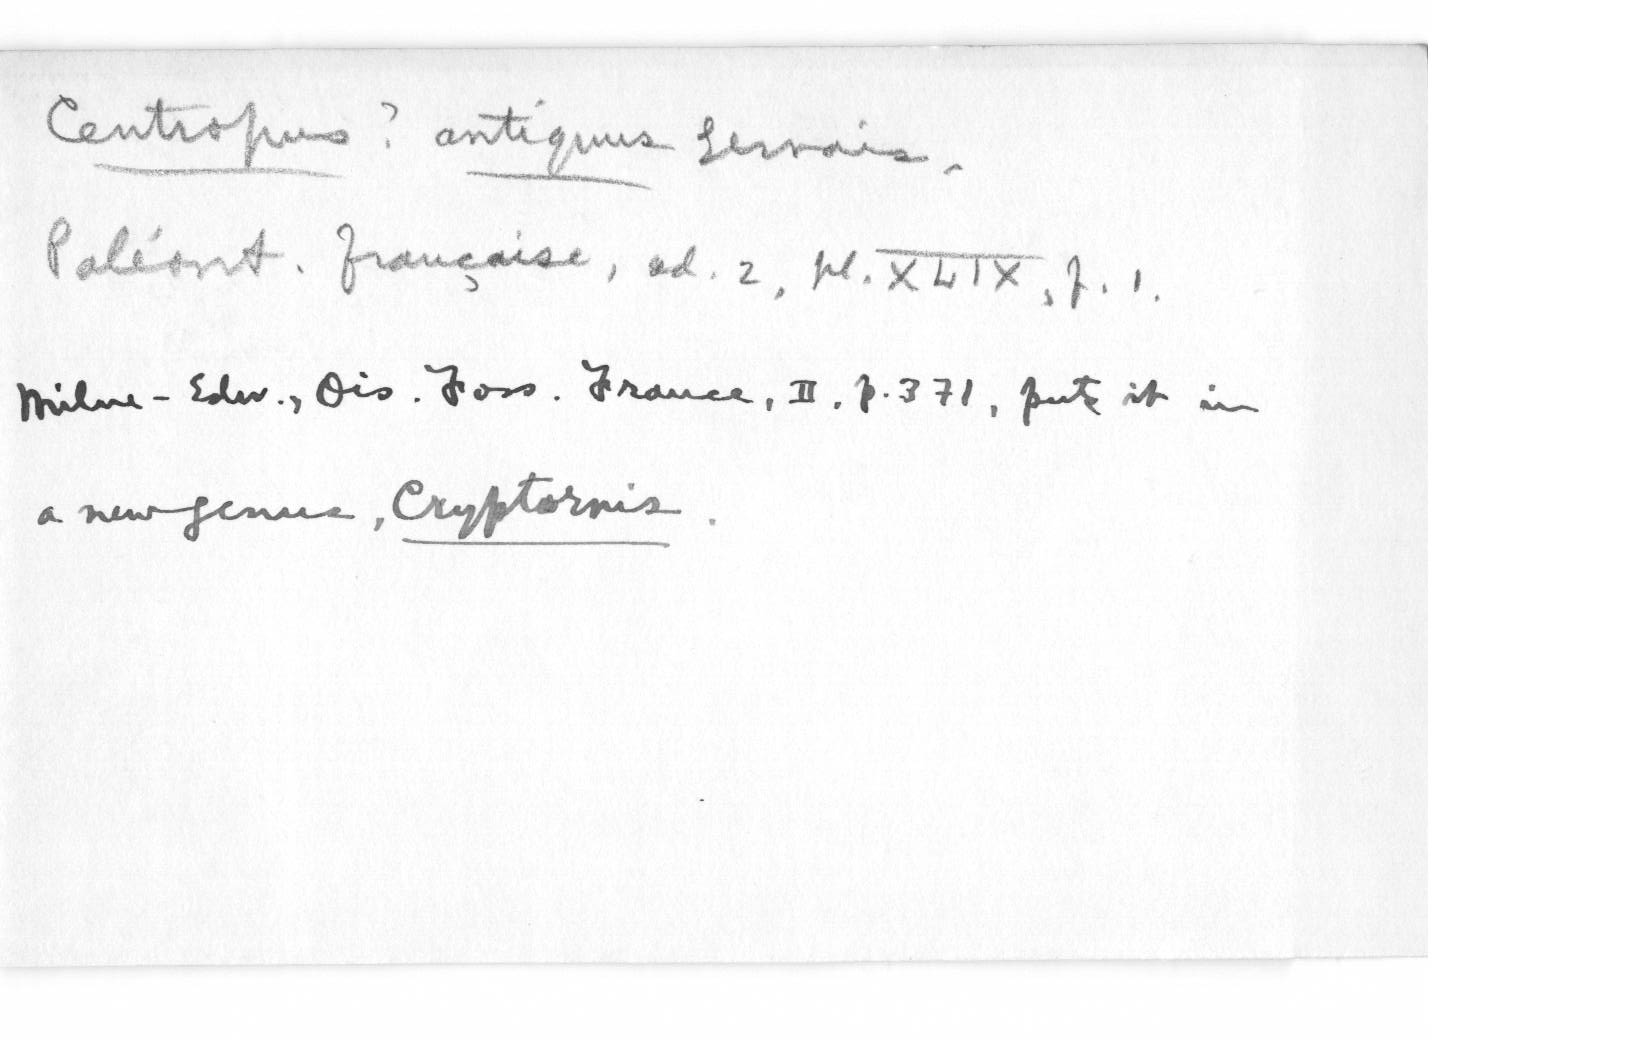 Centropus ? antiquus Gervais.
Paléont. française, ed. 2, pl. XLIX, f. 1.
Milne-Edw., Ois. Foss. France, II, p. 371, puts it in
a new genus, Cryptornis.